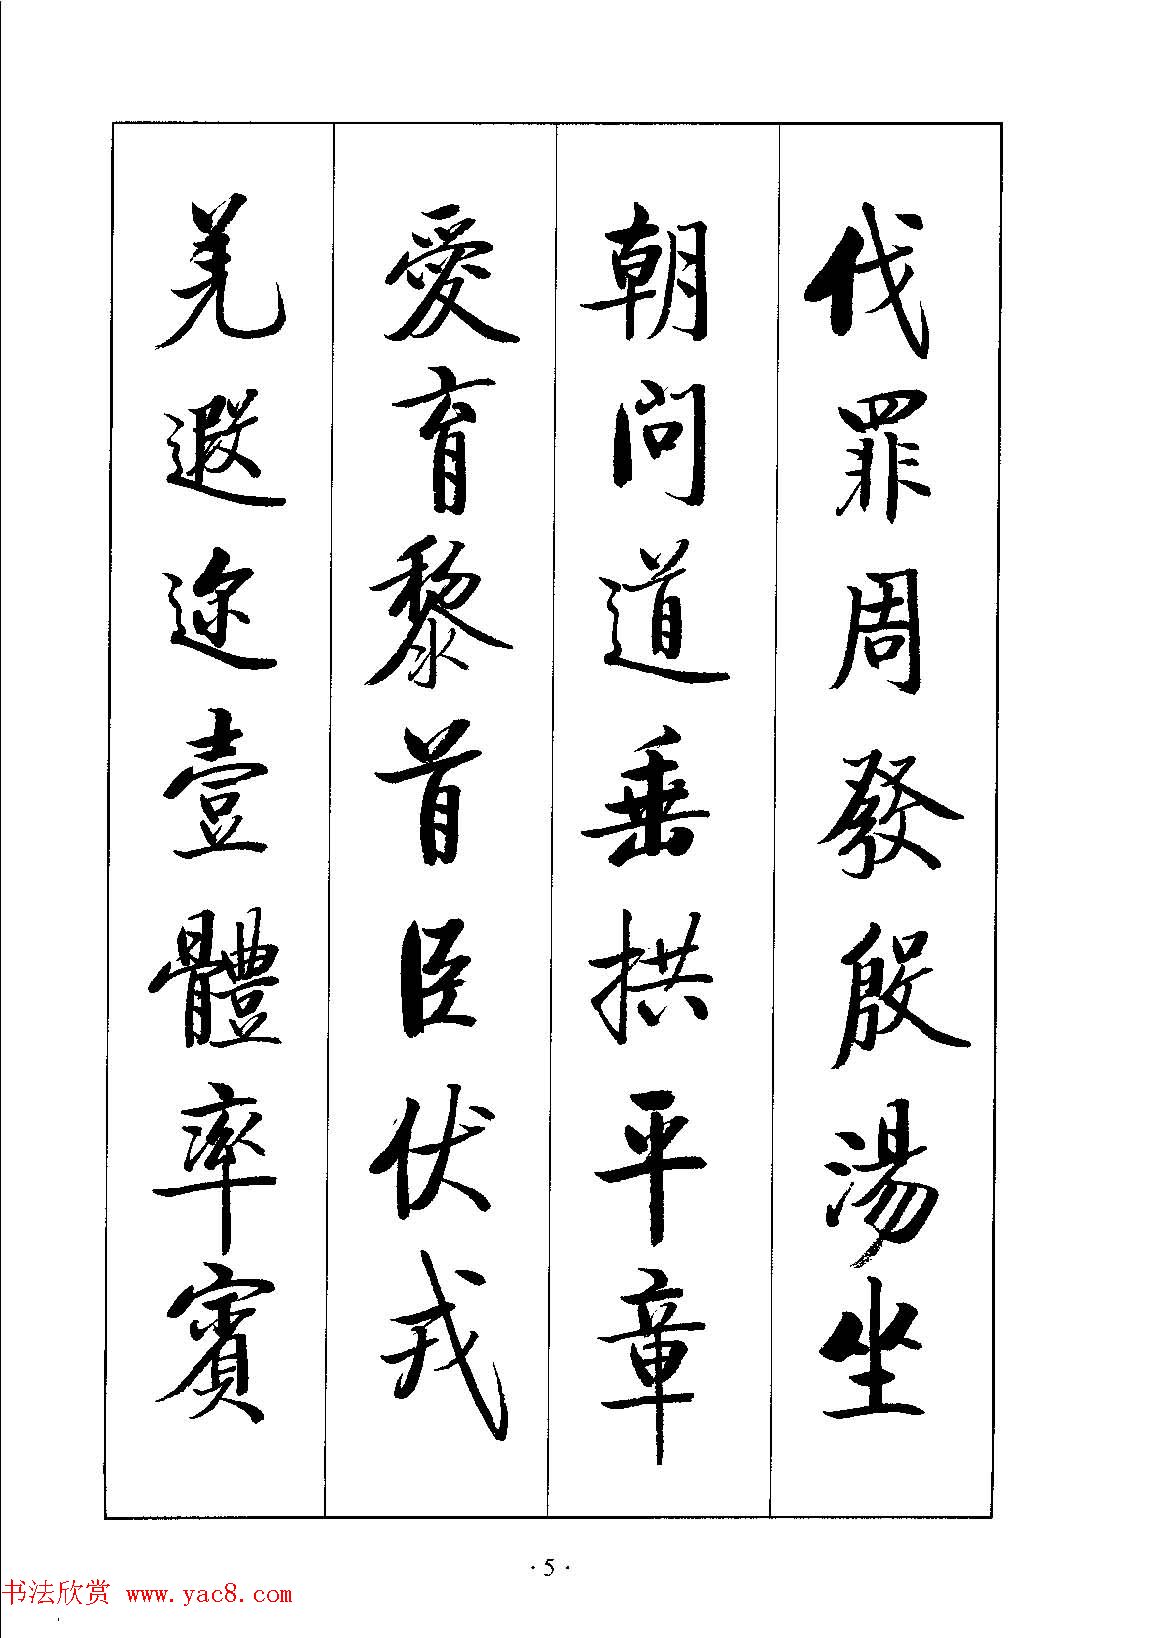 伐罪周發殷湯坐
朝問道垂拱平章
愛育黎首臣伏戎
羌遐迩壹體率賓
·5·
书法欣赏 www.yac8.com